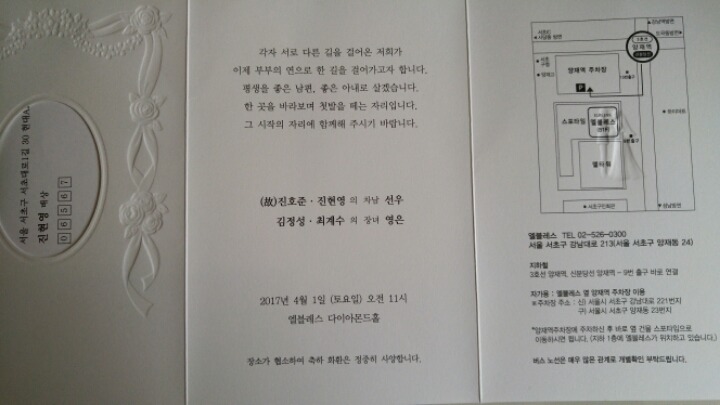 서울 서초구 서초대로1길 30 현대
진현영 배상
06567
각자 서로 다른 길을 걸어온 저희가
이제 부부의 연으로 한 길을 걸어가고자 합니다.
평생을 좋은 남편, 좋은 아내로 살겠습니다.
한 곳을 바라보며 첫발을 떼는 자리입니다.
그 시작의 자리에 함께해 주시기 바랍니다.
(故)진호준 · 진현영 의 차남 선우
김정성 · 최계수 의 장녀 영은
2017년 4월 1일 (토요일) 오전 11시
엘블레스 다이아몬드홀
장소가 협소하여 축하 화환은 정중히 사양합니다.
3호선
양재역
양재역 주차장
P
스포타임
엘블레스
엘타워
서초구민회관
엘블레스 TEL 02-526-0300
서울 서초구 강남대로 213(서울 서초구 양재동 24)
지하철
3호선 양재역, 신분당선 양재역 - 9번 출구 바로 연결
자가용 : 엘블레스 옆 양재역 주차장 이용
※주차장 주소 : 신) 서울시 서초구 강남대로 221번지
구) 서울시 서초구 양재동 23번지
*양재역주차장에 주차하신 후 바로 옆 건물 스포타임으로
이동하시면 됩니다. (지하 1층에 엘블레스가 위치하고 있습니다.)
버스 노선은 매우 많은 관계로 개별확인 부탁드립니다.